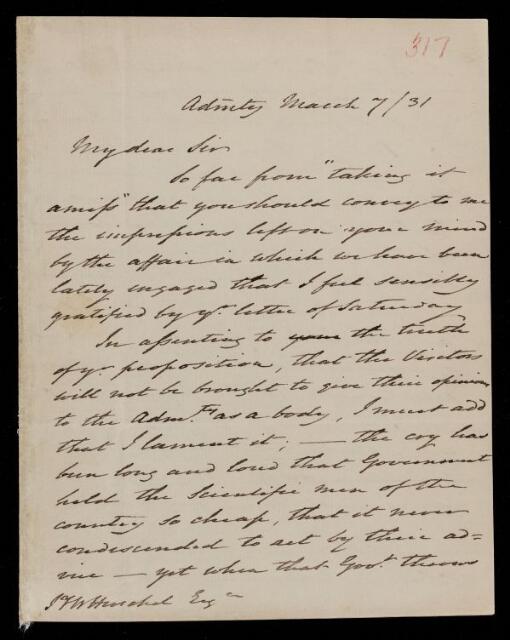 317
Admty March 7/31
My dear Sir
So far from "taking it
amiss" that you should convey to me
the impressions left on your mind
by the affair in which we have been
lately engaged that I feel sensibly
gratified by yr. letter of Saturday
In assenting to your the truth
of yr. proposition, that the Visitors
will not be brought to give their opinion
to the Admty. as a body, I must add
that I lament it; — the cry has
been long and loud that Government
held the Scientific men of the
country so cheap, that it never
condescended to act by their ad-
vice — yet when that Govt. throws
J F W Herschel Esqre